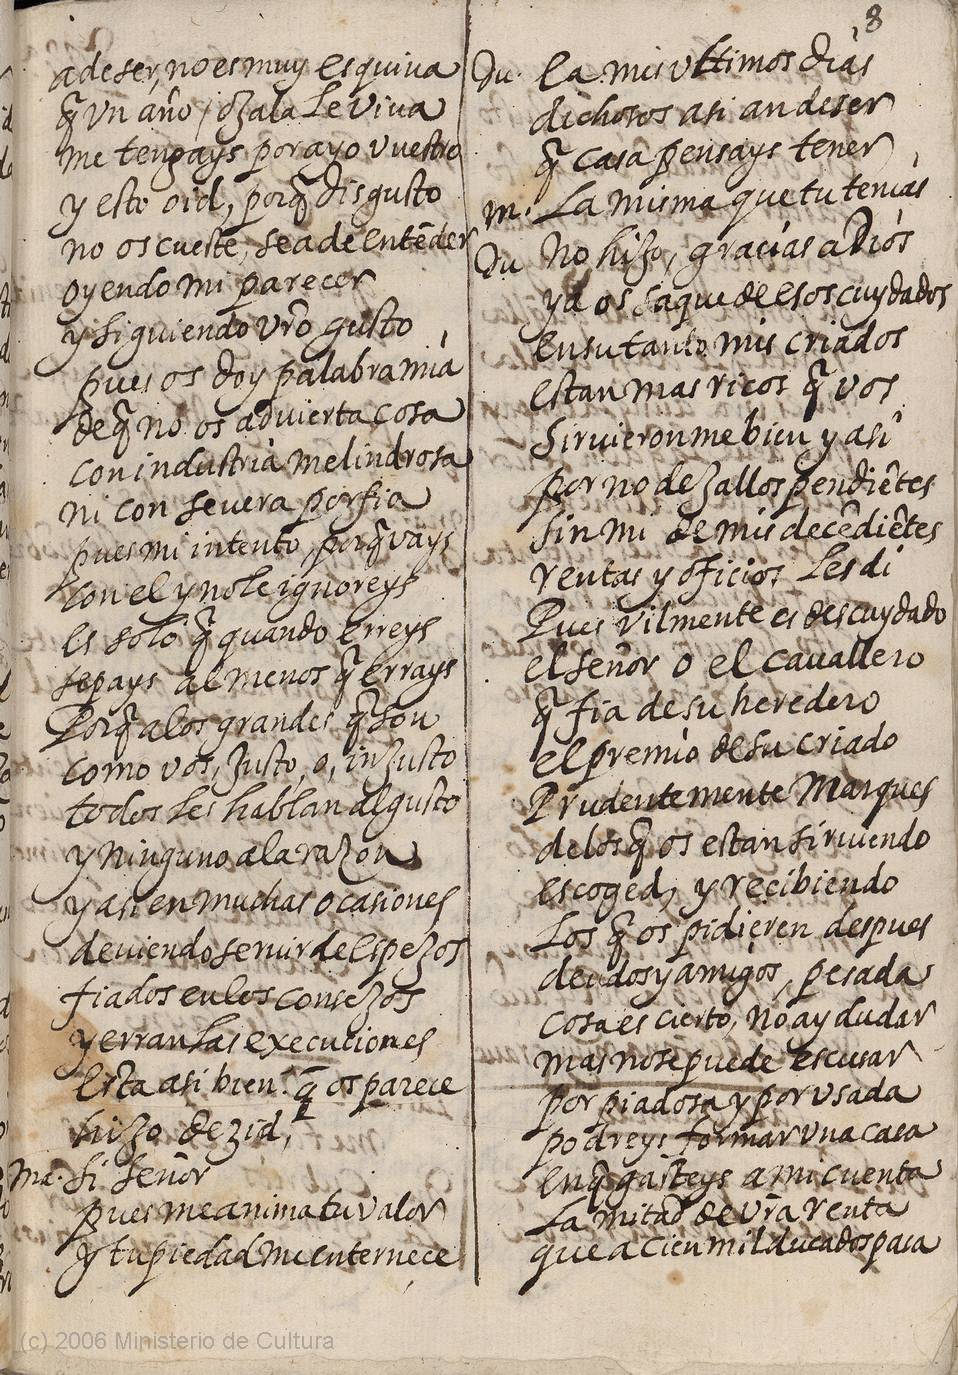 8
a de ser, no es muy esquiva
q̃ Vn año, ojala le Viva
me tengays por ayo vuestro
y esto oid, porq̃ disgusto
no os cueste, sea de entẽder
oyendo mi parecer
y siguiendo vrõ gusto
pues os doy palabra mia
de q̃ no os advierta cosa
con industria melindrosa
ni con severa porfia
pues mi intento, porq̃ vays
con el y no le ignoreys
es solo q̃ quando erreys
sepays al menos q̃ errays
Porq̃ a los grandes q̃ son
como vos, justo, o, injusto
todos les hablan al gusto
y ninguno a la razon
y asi en muchas ocasiones
deviendo servir de espejos
fiados en los consejos
yerran las execuciones
Esta asi bien? q̃ os parece
hijo dezid,
Ma. Si señor
pues me anima tu valor
y tu piedad me enternece
Du. Ea mis vltimos dias
dichosos asi an de ser
q̃ casa pensays tener
m. La misma que tu tenias
Du No hijo, gracias a Dios
ya os saque de esos cuydados
en su tanto mis criados
estan mas ricos q̃ vos
Sirvieronme bien y asi
por no dejallos pendiẽtes
sin mi de mis decẽdiẽtes
rentas y oficios les di
Pues vilmente es descuydado
el señor o el cavallero
q̃ fia de su heredero
el premio de su criado
Prudentemente Marques
de los q̃ os estan sirviendo
escoged, y recibiendo
los q̃ os pidieren despues
deudos y amigos, pesada
cosa es cierto, no ay dudar
mas no se puede escusar
por piadosa y por vsada
podreys formar vna casa
en q̃ gasteys a mi cuenta
La mitad de vrã renta
que a cien mil ducados pasa
(c) 2006 Ministerio de Cultura